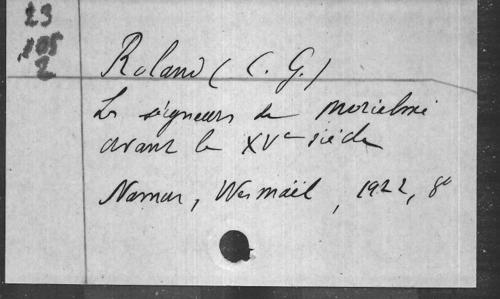 23
105
2
Roland (C. G.)
Les seigneurs de Morialmé
avant le XVe siècle
Namur, Wesmaël, 1922, 8°